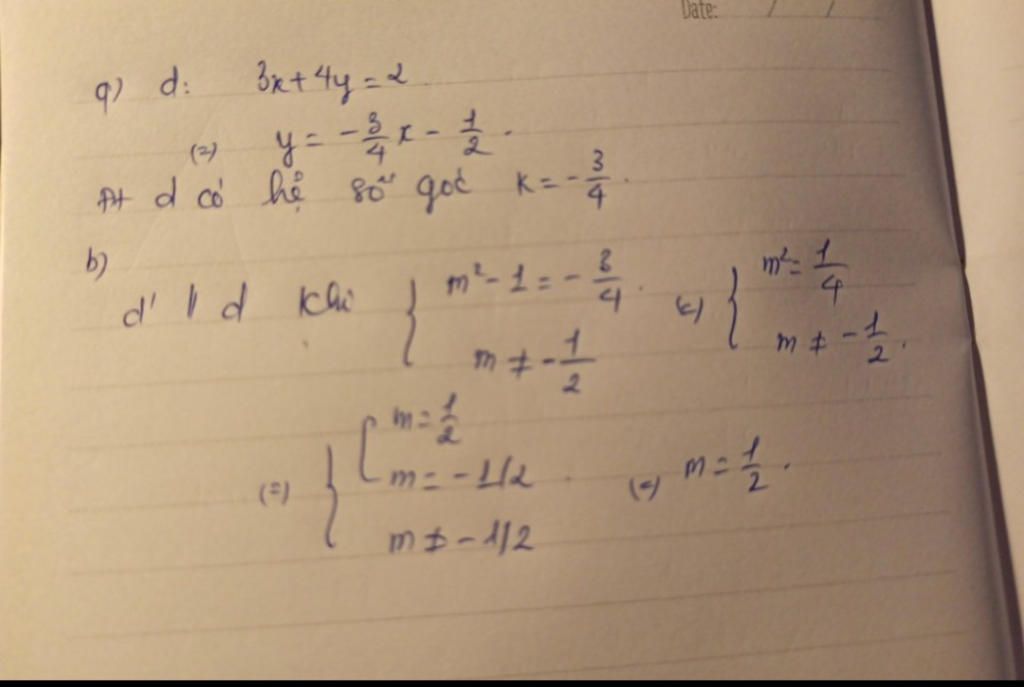 Date: / /
a) d: 3x + 4y = 2
(=) y = -3/4 x - 1/2.
Pt d có hệ số góc k = -3/4.
b)
d' // d khi { m² - 1 = -3/4. m ≠ -1/2 (=) { m² = 1/4 m ≠ -1/2.
(=) { [ m = 1/2 m = -1/2. m ≠ -1/2 (=) m = 1/2.